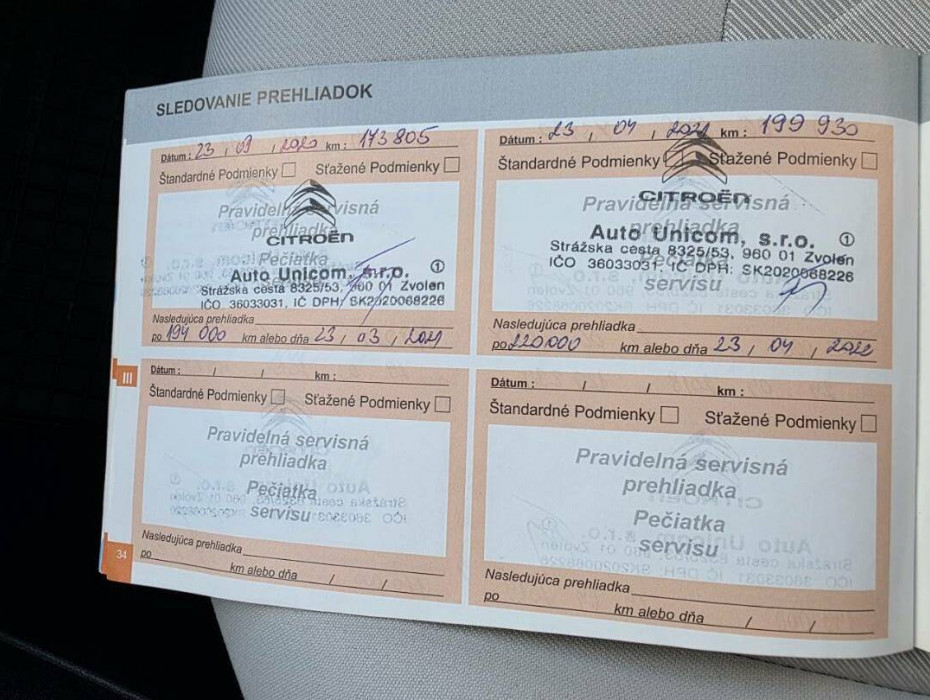 SLEDOVANIE PREHLIADOK
Dátum : 23 , 09 , 2020 km : 173 805
Štandardné Podmienky Sťažené Podmienky
Pravidelná servisná
prehliadka
CITROËN
Pečiatka
Auto Unicom, s.r.o. 1
Strážska cesta 8325/53, 960 01 Zvolen
IČO 36033031, IČ DPH: SK2020068226
Nasledujúca prehliadka
po 194 000 km alebo dňa 23 , 03 , 2021
Dátum : 23 , 04 , 2021 km : 199 930
Štandardné Podmienky Sťažené Podmienky
CITROËN
Pravidelná servisná
prehliadka
Auto Unicom, s.r.o. 1
Strážska cesta 8325/53, 960 01 Zvolen
Pečiatka
IČO 36033031, IČ DPH: SK2020068226
servisu
Nasledujúca prehliadka
po 220000 km alebo dňa 23 , 04 , 2022
III
Dátum : / / km :
Štandardné Podmienky Sťažené Podmienky
Pravidelná servisná
prehliadka
Pečiatka
servisu
Nasledujúca prehliadka
po km alebo dňa / /
Dátum : / / km :
Štandardné Podmienky Sťažené Podmienky
Pravidelná servisná
prehliadka
Pečiatka
servisu
Nasledujúca prehliadka
po km alebo dňa / /
34